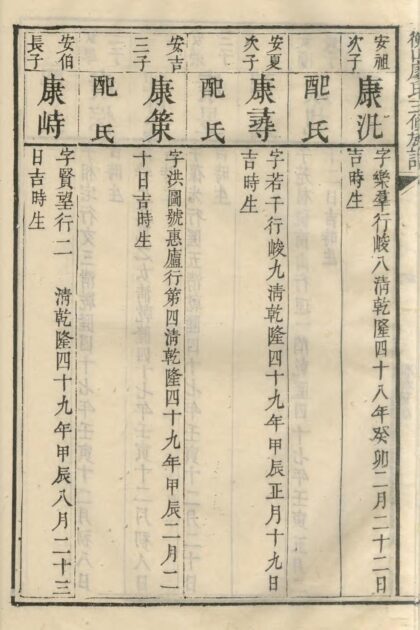 安祖
次子
康沘
配氏
字樂羣行峻八清乾隆四十八年癸卯二月二十二日
吉時生
安夏
次子
康尋
配氏
字若干行峻九清乾隆四十九年甲辰正月十九日
吉時生
安吉
三子
康策
配氏
字洪圖號惠廬行第四清乾隆四十九年甲辰二月二
十日吉時生
安伯
長子
康峙
配氏
字賢望行二 清乾隆四十九年甲辰八月二十三
日吉時生